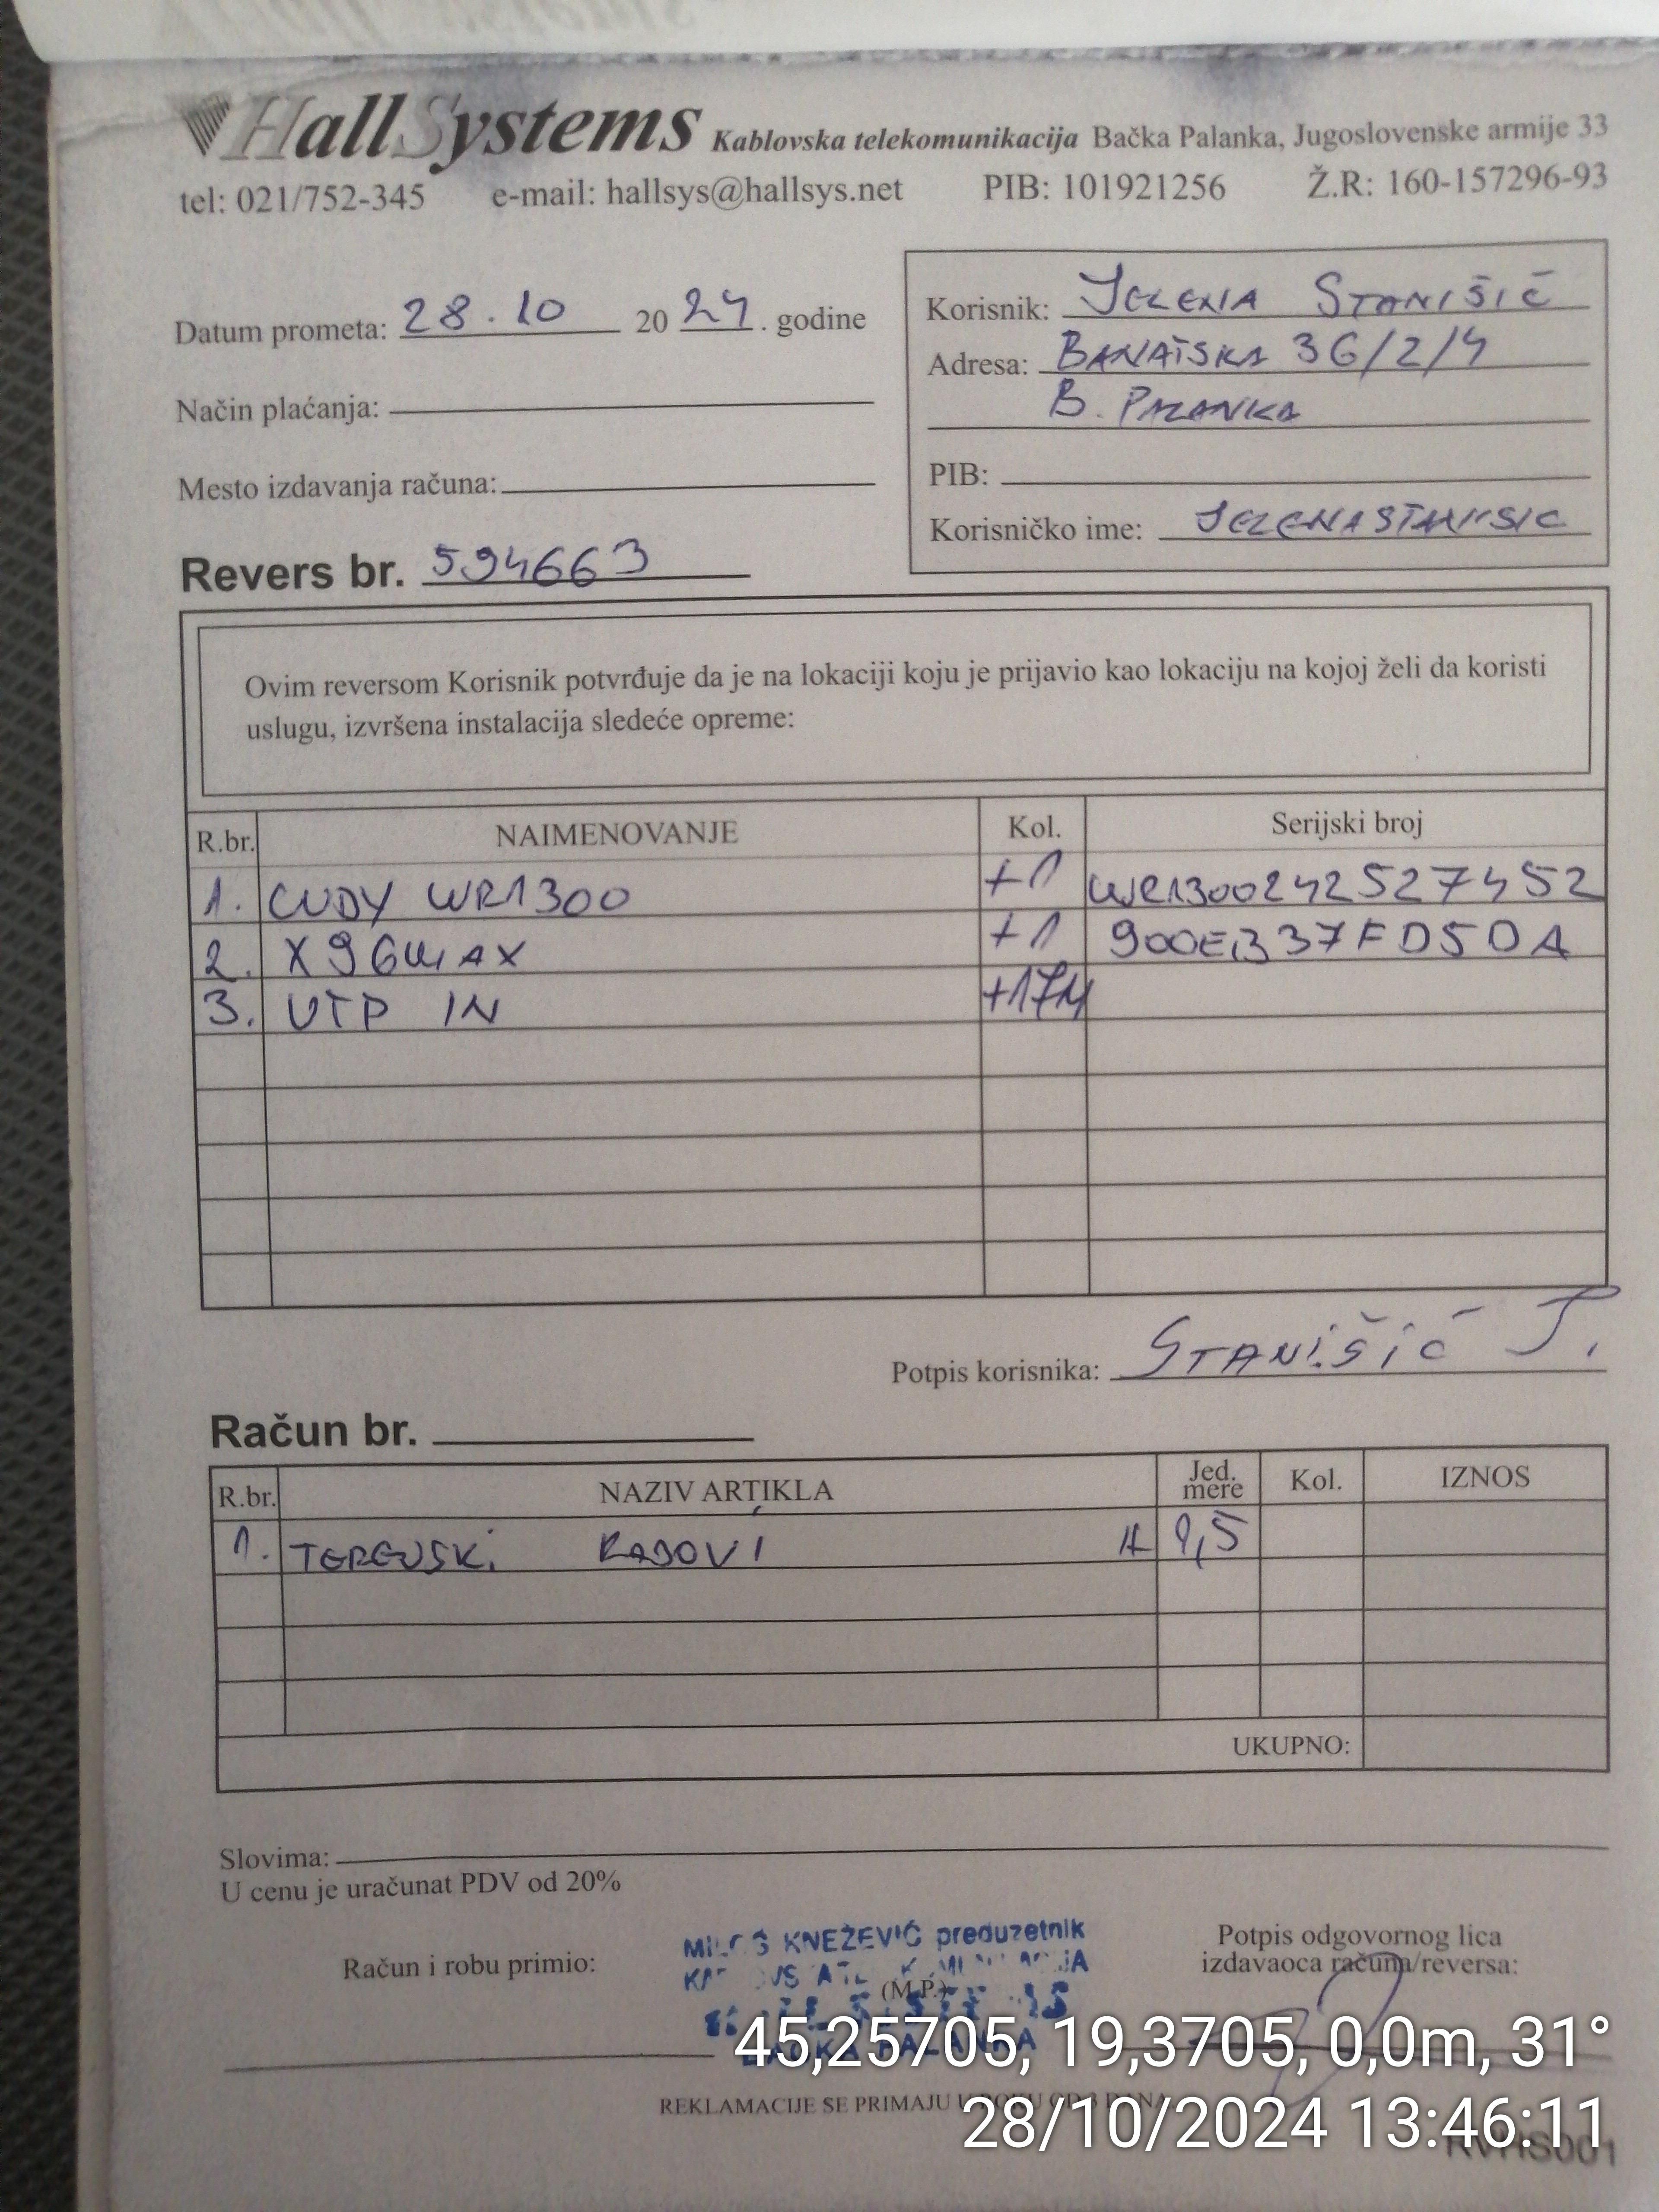 HallSystems Kablovska telekomunikacija Bačka Palanka, Jugoslovenske armije 33
tel: 021/752-345 e-mail: hallsys@hallsys.net PIB: 101921256 Ž.R: 160-157296-93
Datum prometa: 28.10 2024. godine
Način plaćanja:
Mesto izdavanja računa:
Revers br. 594663
Korisnik: JELENA STANIŠIĆ
Adresa: BANATSKA 36/2/4
B. PALANKA
PIB:
Korisničko ime: JELENASTANISIC
Ovim reversom Korisnik potvrđuje da je na lokaciji koju je prijavio kao lokaciju na kojoj želi da koristi
uslugu, izvršena instalacija sledeće opreme:
R.br. NAIMENOVANJE Kol. Serijski broj
1. CUDY WR1300 +1 WR1300242527452
2. X96MAX +1 900EB337FD5DA
3. UTP IN +17M
Potpis korisnika: STANIŠIĆ J.
Račun br.
R.br. NAZIV ARTIKLA Jed. mere Kol. IZNOS
1. TERENSKI RADOVI H 1,5
UKUPNO:
Slovima:
U cenu je uračunat PDV od 20%
Račun i robu primio:
MILOŠ KNEŽEVIĆ preduzetnik
(M.P.)
BAČKA PALANKA
Potpis odgovornog lica
izdavaoca računa/reversa:
REKLAMACIJE SE PRIMAJU U ROKU OD 3 DANA
45,25705, 19,3705, 0,0m, 31°
28/10/2024 13:46:11